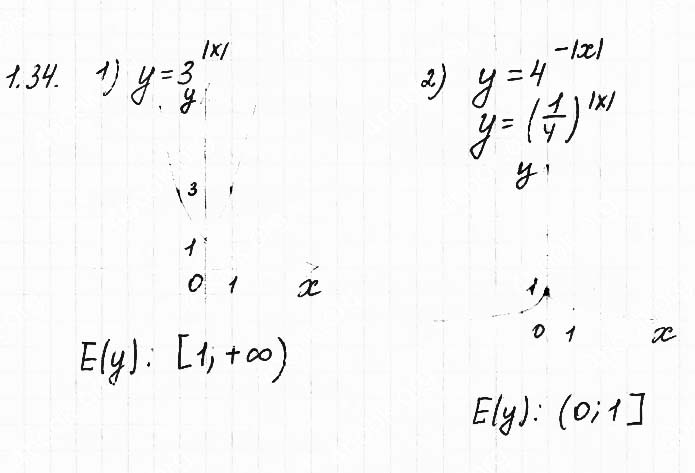 1.34. 1) y = 3^|x|
y
3
1
0 1 x
E(y): [1; +∞)
2) y = 4^-|x|
y = (1/4)^|x|
y
1
0 1 x
E(y): (0; 1]